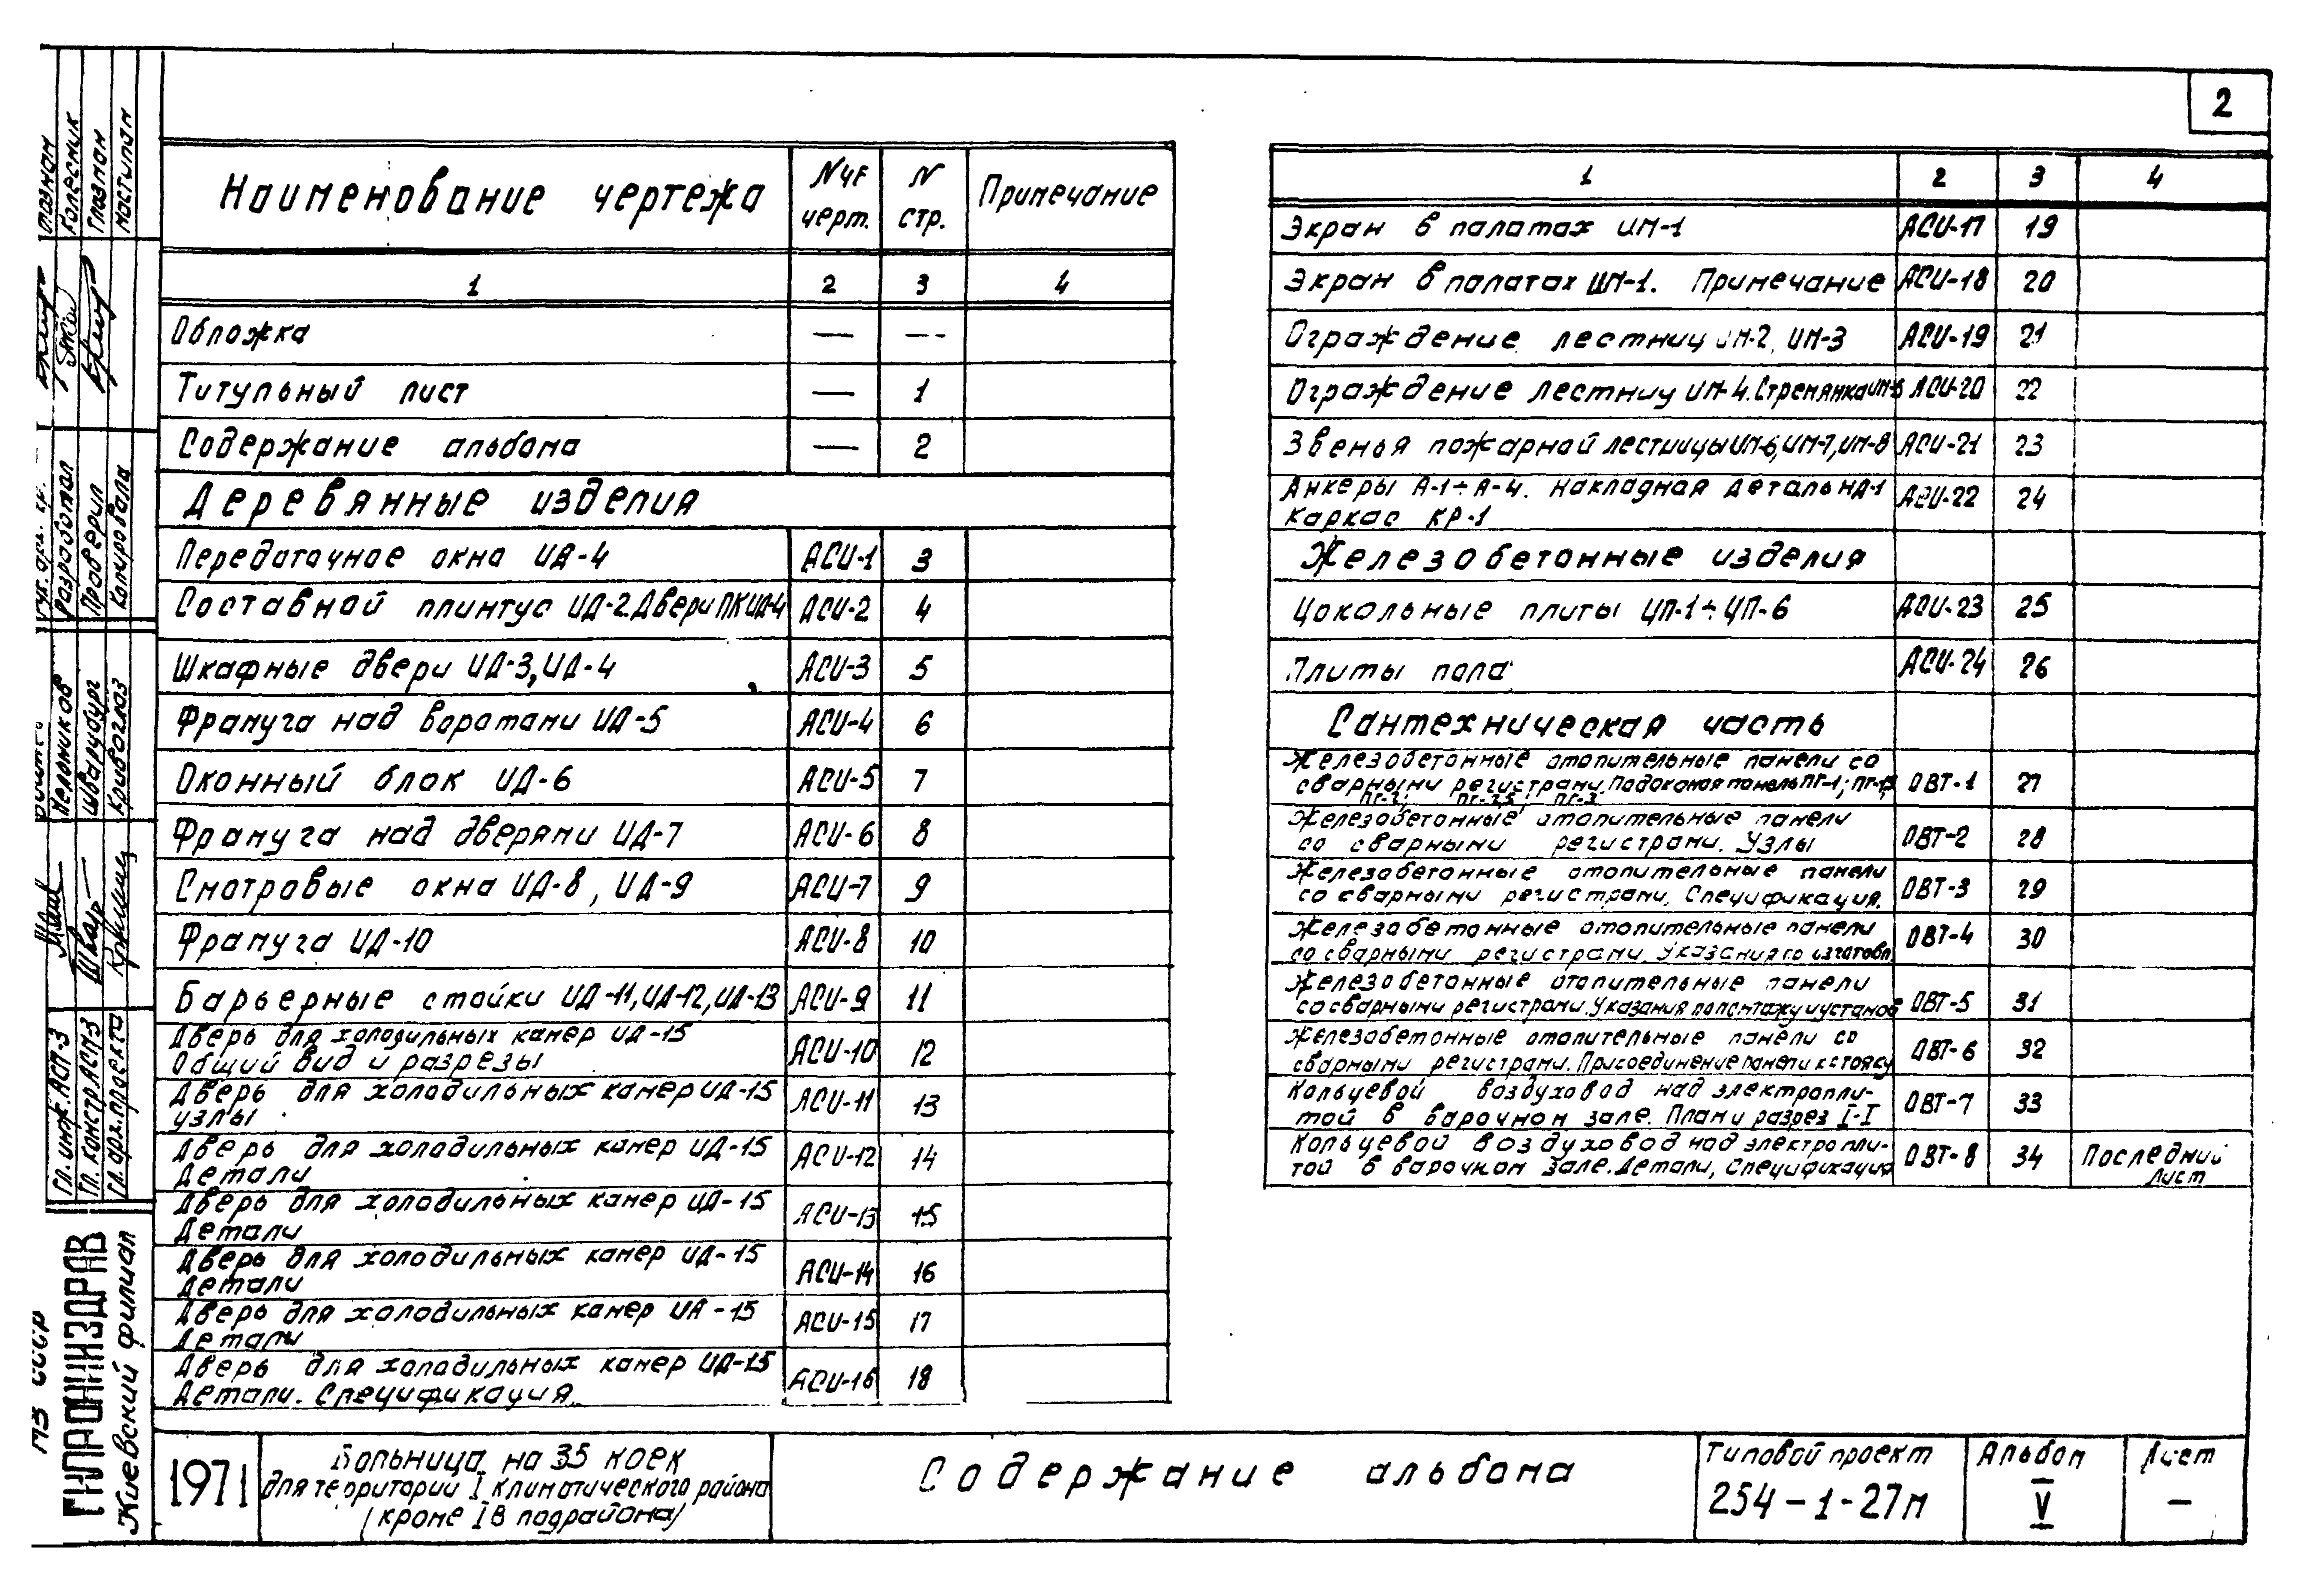 2
Наименование чертежа
№ черт.
N стр.
Примечание
1 2 3 4
Обложка — —
Титульный лист — 1
Содержание альбома — 2
Деревянные изделия
Передаточное окна ИД-4 АСИ-1 3
Составной плинтус ИД-2. Двери ПК ИД-4 АСИ-2 4
Шкафные двери ИД-3, ИД-4 АСИ-3 5
Фрамуга над воротами ИД-5 АСИ-4 6
Оконный блок ИД-6 АСИ-5 7
Фрамуга над дверями ИД-7 АСИ-6 8
Смотровые окна ИД-8, ИД-9 АСИ-7 9
Фрамуга ИД-10 АСИ-8 10
Барьерные стойки ИД-11, ИД-12, ИД-13 АСИ-9 11
Дверь для холодильных камер ИД-15
Общий вид и разрезы АСИ-10 12
Дверь для холодильных камер ИД-15
узлы АСИ-11 13
Дверь для холодильных камер ИД-15
Детали АСИ-12 14
Дверь для холодильных камер ИД-15
Детали АСИ-13 15
Дверь для холодильных камер ИД-15
Детали АСИ-14 16
Дверь для холодильных камер ИД-15
Детали АСИ-15 17
Дверь для холодильных камер ИД-15
Детали. Спецификация. АСИ-16 18
1 2 3 4
Экран в палатах ИМ-1 АСИ-17 19
Экран в палатах ИМ-1. Примечание АСИ-18 20
Ограждение лестниц ИМ-2, ИМ-3 АСИ-19 21
Ограждение лестниц ИМ-4. Стремянка ИМ-5 АСИ-20 22
Звенья пожарной лестницы ИМ-6, ИМ-7, ИМ-8 АСИ-21 23
Анкеры А-1÷А-4. Накладная деталь НД-1
Каркас КР-1 АСИ-22 24
Железобетонные изделия
Цокольные плиты ЦП-1÷ЦП-6 АСИ-23 25
Плиты пола АСИ-24 26
Сантехническая часть
Железобетонные отопительные панели со
сварными регистрами. Подоконая панель ПГ-1; ПГ-1,5 ОВТ-1 27
ПГ-2; ПГ-2,5; ПГ-3
Железобетонные отопительные панели
со сварными регистрами. Узлы ОВТ-2 28
Железобетонные отопительные панели
со сварными регистрами. Спецификация. ОВТ-3 29
Железобетонные отопительные панели
со сварными регистрами. Указания по изготовл. ОВТ-4 30
Железобетонные отопительные панели
со сварными регистрами. Указания по монтажу и установ ОВТ-5 31
Железобетонные отопительные панели со
сварными регистрами. Присоединение панели к стояку ОВТ-6 32
Кольцевой воздуховод над электропли-
той в варочном зале. План и разрез I-I ОВТ-7 33
Кольцевой воздуховод над электропли-
той в варочном зале. Детали, Спецификация ОВТ-8 34 Последний
лист
1971
Больница на 35 коек
для территории I климатического района
/кроме IВ подрайона/
Содержание альбома
Типовой проект
254-1-27м
Альбом
V
Лист
—
МЗ СССР
ГИПРОНИИЗДРАВ
Киевский филиал
Гл. инж. АСП-3
Гл. констр АСПМ-3
Гл. арх. проекта
Мельников
Шварцбург
Кривоглаз
Рук. арх. гр.
Разработал
Проверил
Копировала
Глазман
Колесник
Глазман